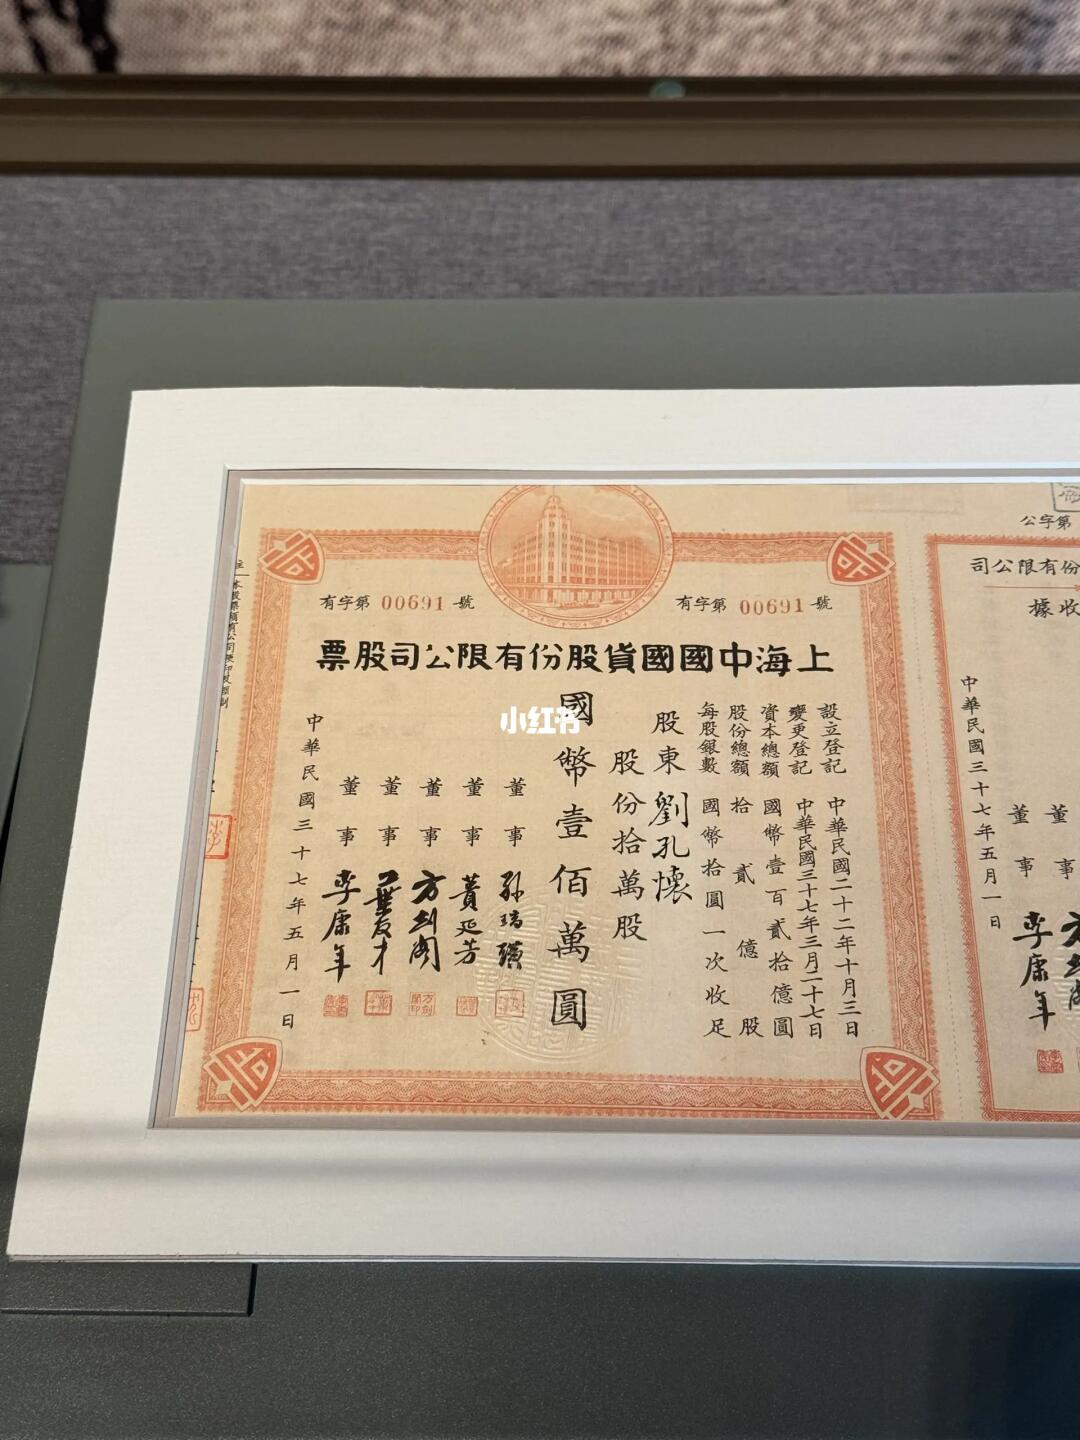 有字第 00691 號
有字第 00691 號
上海中國國貨股份有限公司股票
設立登記 中華民國二十二年十月三日
變更登記 中華民國三十七年三月二十七日
資本總額 國幣壹百貳拾億圓
股份總額 拾貳億股
每股銀數 國幣拾圓一次收足
股東 劉孔懷
股份拾萬股
國幣壹佰萬圓
董事 孫瑞璜
董事 黃延芳
董事 方劍閣
董事 葉友才
董事 李康年
中華民國三十七年五月一日
小红书
公字第
份有限公司
收據
董事
董事 李康年
中華民國三十七年五月一日